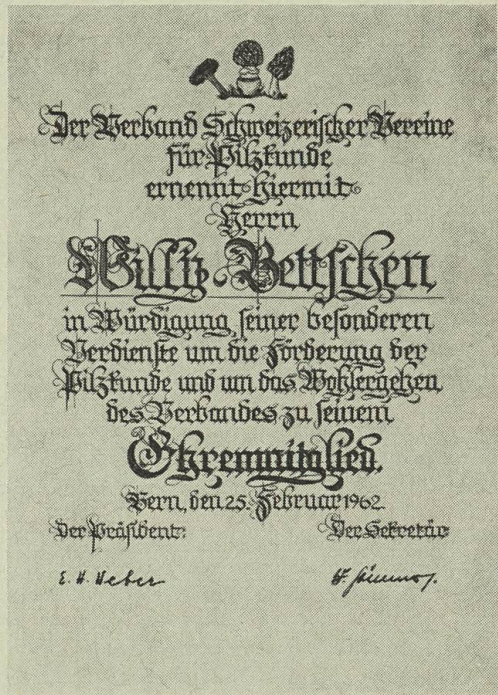 Der Verband Schweizerischer Vereine
für Pilzkunde
ernennt hiermit
Herrn
Willy Bettschen
in Würdigung seiner besonderen
Verdienste um die Förderung der
Pilzkunde und um das Wohlergehen
des Verbandes zu seinem
Ehrenmitglied.
Bern, den 25. Februar 1962
Der Präsident: Der Sekretär:
E. H. Weber